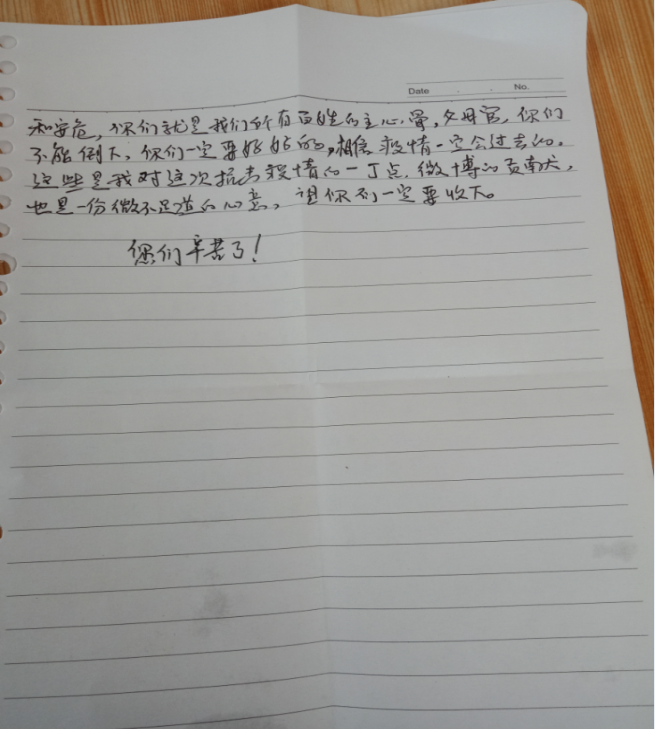 Date No.
和安危,你们就是我们所有百姓的主心骨,父母官,你们
不能倒下,你们一定要好好的,相信疫情一定会过去的。
这些是我对这次抗击疫情的一丁点,微博的贡献,
也是一份微不足道的心意,请你们一定要收下。
您们辛苦了!